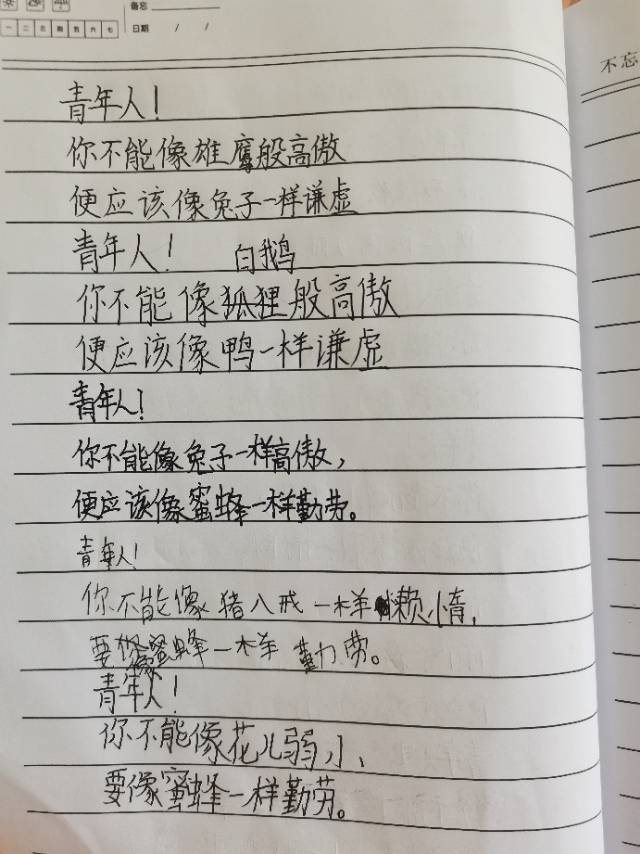 备忘
一 二 三 四 五 六 七
日期 / /
不忘
青年人！
你不能像雄鹰般高傲
便应该像兔子一样谦虚
青年人！ 白鹅
你不能像狐狸般高傲
便应该像鸭一样谦虚
青年人！
你不能像兔子一样高傲，
便应该像蜜蜂一样勤劳。
青年人！
你不能像猪八戒一样懒惰，
要像蜜蜂一样勤劳。
青年人！
你不能像花儿弱小、
要像蜜蜂一样勤劳。